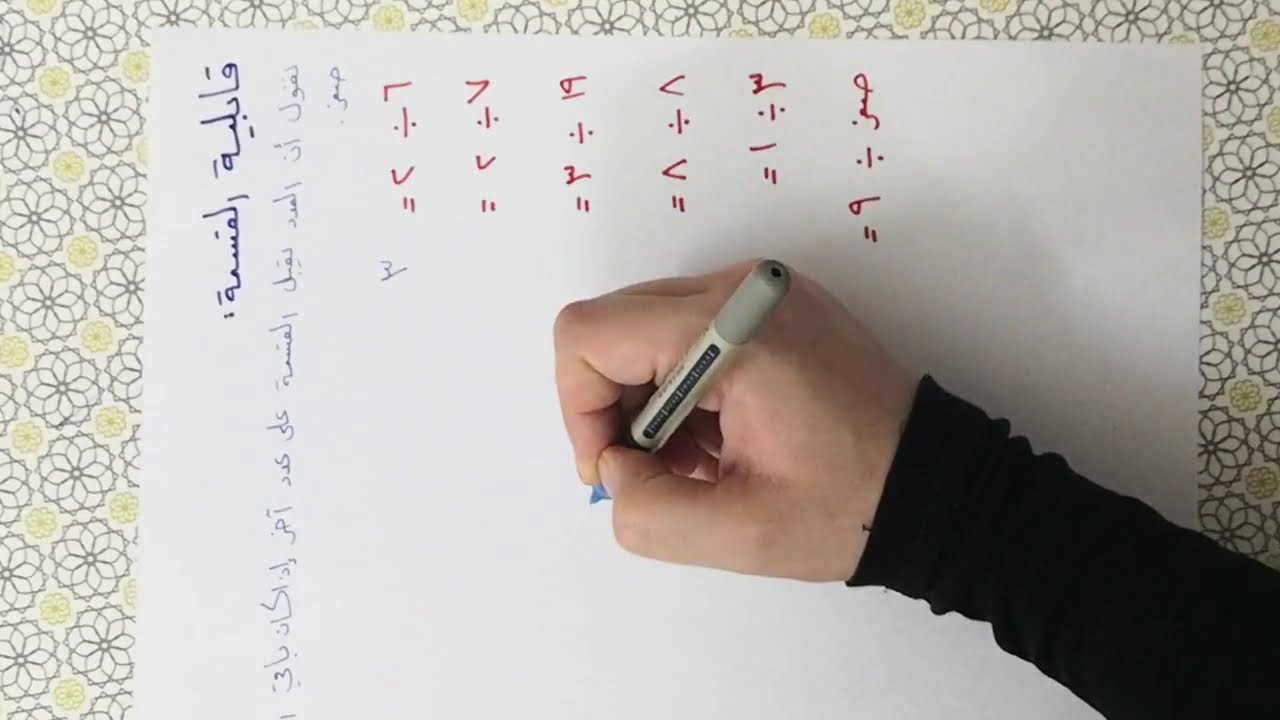 قابلية القسمة:
نقول أن العدد يقبل القسمة على عدد آخر إذا كان باقي
صفر.
٦ ÷ ٢ = ٣
٧ ÷ ٢ =
١٩ ÷ ٣ =
٨ ÷ ٨ =
٣ ÷ ١ =
صفر ÷ ٩ =